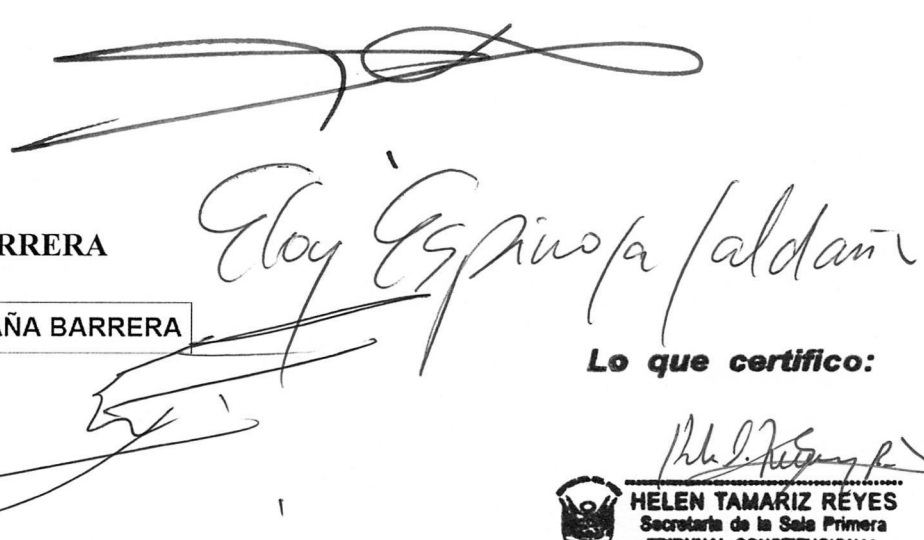 RRERA
Eloy Espinosa Saldaña
AÑA BARRERA
Lo que certifico:
HELEN TAMARIZ REYES
Secretaria de la Sala Primera
TRIBUNAL CONSTITUCIONAL